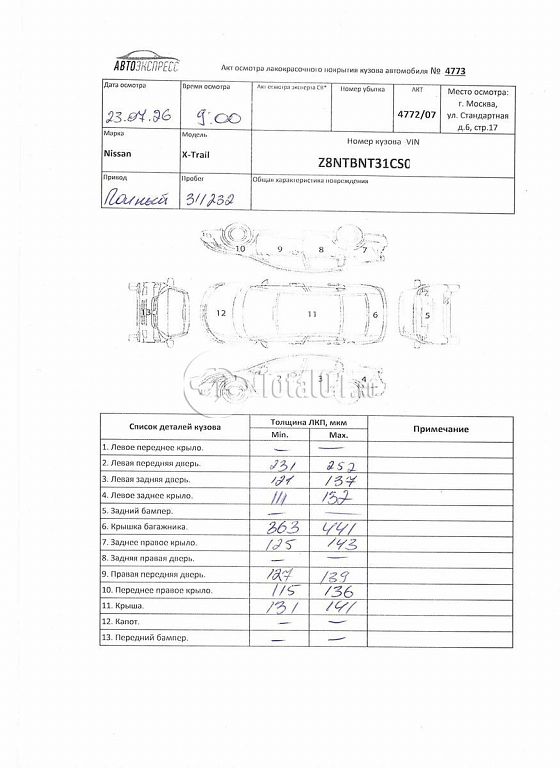 АВТОЭКСПРЕСС
Акт осмотра лакокрасочного покрытия кузова автомобиля № 4773
Дата осмотра Время осмотра Акт осмотра эксперта СК* Номер убытка АКТ Место осмотра:
г. Москва,
ул. Стандартная
д.6, стр.17
23.07.26 9:00 4772/07
Марка Модель Номер кузова VIN
Nissan X-Trail Z8NTBNT31CS0
Привод Пробег Общая характеристика повреждения
Полный 311232
10 9 8 7
13 12 11 6 5
1 3 4
Total01.ru
Список деталей кузова Толщина ЛКП, мкм Примечание
Min. Max.
1. Левое переднее крыло. — —
2. Левая передняя дверь. 231 252
3. Левая задняя дверь. 121 137
4. Левое заднее крыло. 111 132
5. Задний бампер. — —
6. Крышка багажника. 363 441
7. Заднее правое крыло. 125 143
8. Задняя правая дверь. — —
9. Правая передняя дверь. 127 139
10. Переднее правое крыло. 115 136
11. Крыша. 131 141
12. Капот. — —
13. Передний бампер. — —